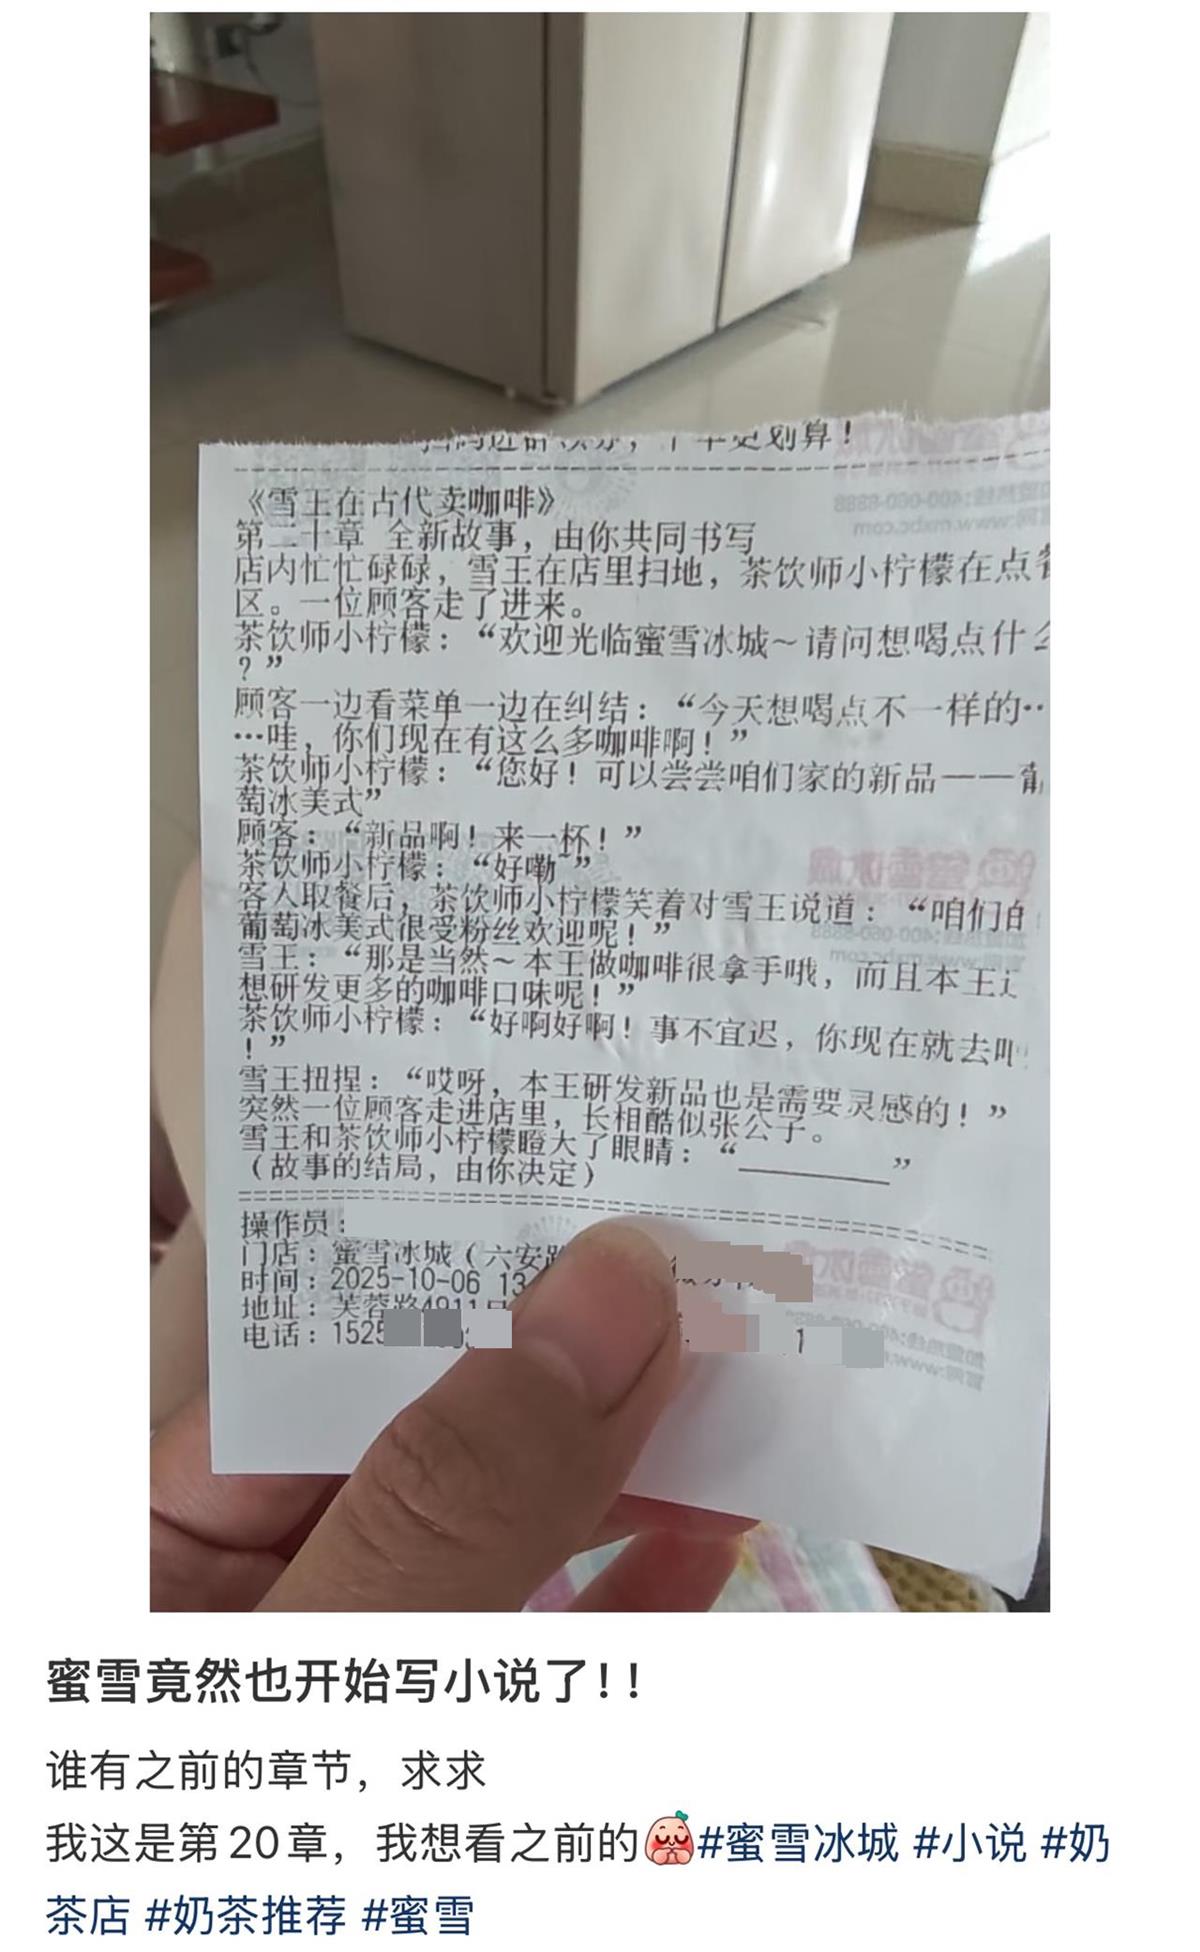 下单更划算！
《雪王在古代卖咖啡》
第二十章 全新故事，由你共同书写
店内忙忙碌碌，雪王在店里扫地，茶饮师小柠檬在点餐
区。一位顾客走了进来。
茶饮师小柠檬：“欢迎光临蜜雪冰城～请问想喝点什么
？”
顾客一边看菜单一边在纠结：“今天想喝点不一样的…
…哇，你们现在有这么多咖啡啊！”
茶饮师小柠檬：“您好！可以尝尝咱们家的新品——葡
萄冰美式”
顾客：“新品啊！来一杯！”
茶饮师小柠檬：“好嘞~”
客人取餐后，茶饮师小柠檬笑着对雪王说道：“咱们的
葡萄冰美式很受粉丝欢迎呢！”
雪王：“那是当然～本王做咖啡很拿手哦，而且本王还
想研发更多的咖啡口味呢！”
茶饮师小柠檬：“好啊好啊！事不宜迟，你现在就去叫
！”
雪王扭捏：“哎呀，本王研发新品也是需要灵感的！”
突然一位顾客走进店里，长相酷似张公子。
雪王和茶饮师小柠檬瞪大了眼睛：“________”
（故事的结局，由你决定）
操作员：
门店：蜜雪冰城（六安路
时间：2025-10-06 13
地址：芙蓉路4911号
电话：1525
蜜雪竟然也开始写小说了！！
谁有之前的章节，求求
我这是第20章，我想看之前的#蜜雪冰城 #小说 #奶
茶店 #奶茶推荐 #蜜雪